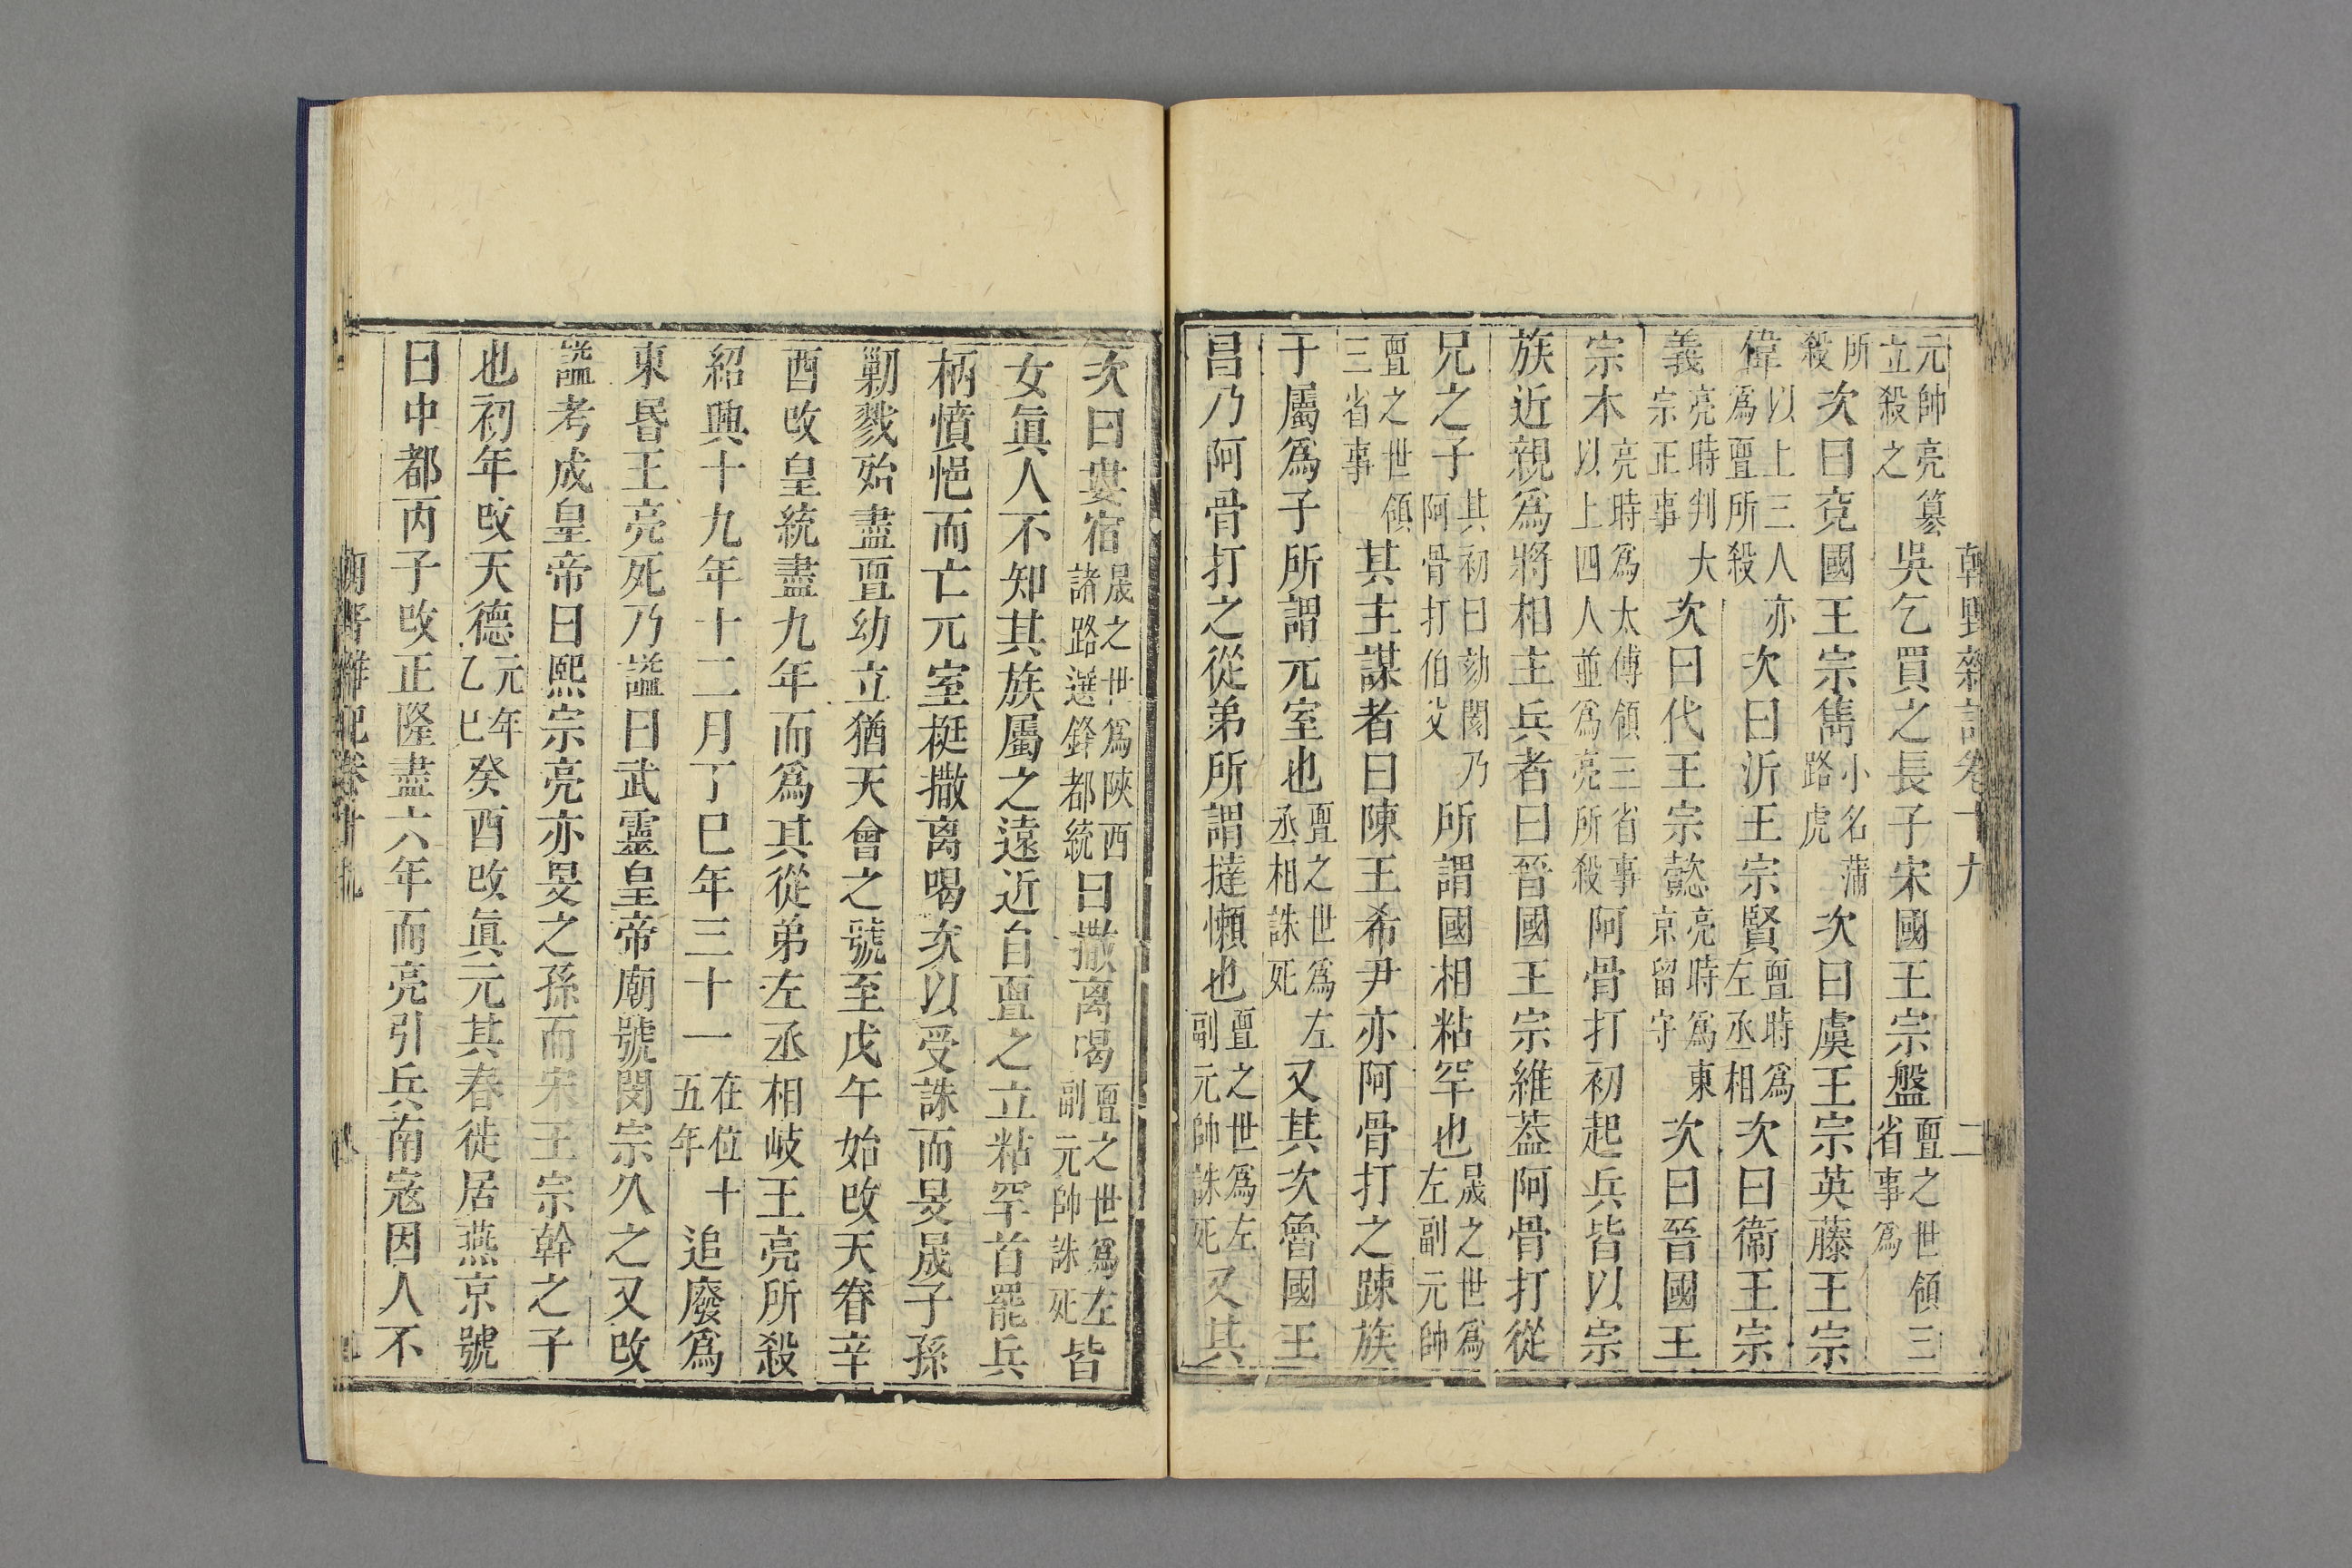 朝野雜記卷十九 二
元帥亮篡立殺之吳乞買之長子宋國王宗盤亶之世領三省事爲
所殺次曰兗國王宗雋小名蒲路虎次曰虞王宗英藤王宗
偉以上三人亦爲亶所殺次曰沂王宗賢亶時爲左丞相次曰衞王宗
義亮時判大宗正事次曰代王宗懿亮時爲東京留守次曰晉國王
宗本亮時爲太傅領三省事以上四人並爲亮所殺阿骨打初起兵皆以宗
族近親爲將相主兵者曰晉國王宗維葢阿骨打從
兄之子其初曰劾閡乃阿骨打伯父所謂國相粘罕也晟之世爲左副元帥
亶之世領三省事其主謀者曰陳王希尹亦阿骨打之踈族
于屬爲子所謂元室也亶之世爲左丞相誅死又其次魯國王
昌乃阿骨打之從弟所謂撻懶也亶之世爲左副元帥誅死又其
次曰婁宿晟之世爲陝西諸路選鋒都統曰撒离喝亶之世爲左副元帥誅死皆
女眞人不知其族屬之遠近自亶之立粘罕首罷兵
柄憤悒而亡元室梃撒离喝次以受誅而旻晟子孫
勦戮殆盡亶幼立猶天會之號至戊午始改天眷辛
酉改皇統盡九年而爲其從弟左丞相岐王亮所殺
紹興十九年十二月丁巳年三十一在位十五年追廢爲
東昬王亮死乃謚曰武靈皇帝廟號閔宗久之又改
謚考成皇帝曰熙宗亮亦旻之孫而宋王宗幹之子
也初年改天德元年乙巳癸酉改眞元其春徙居燕京號
曰中都丙子改正隆盡六年而亮引兵南寇因人不
朝野雜記卷十九